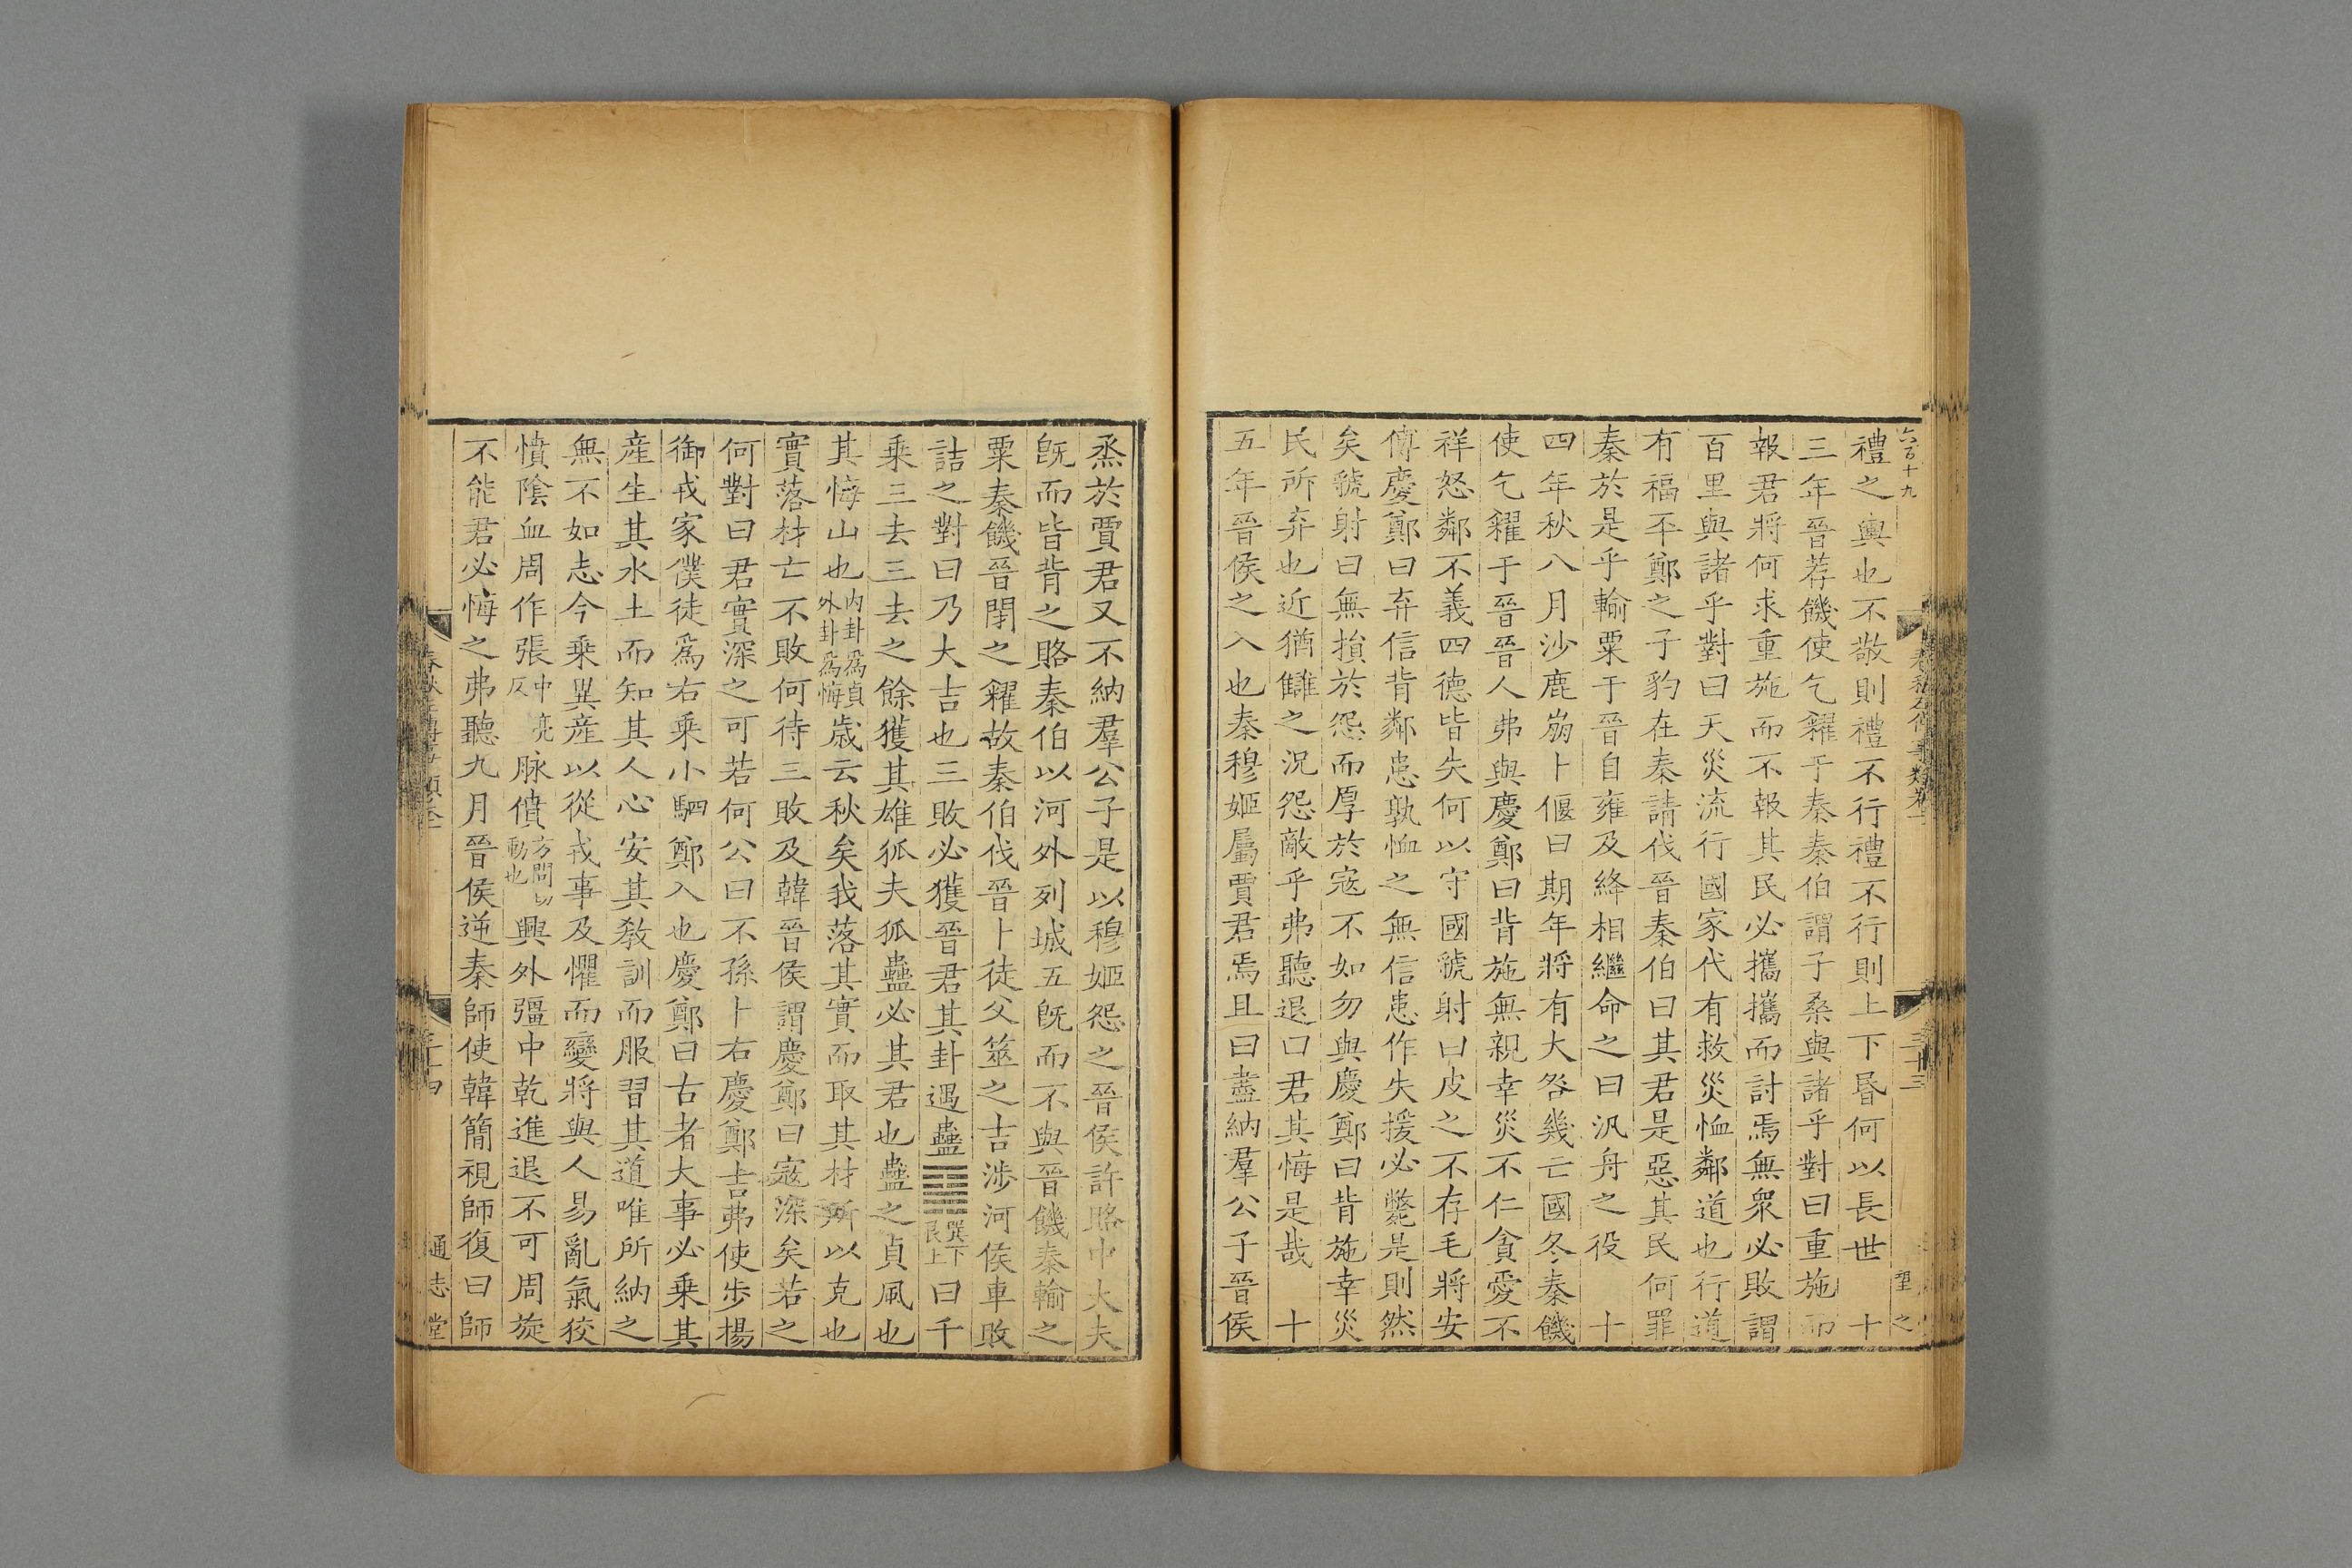 六百十九
禮之輿也不敬則禮不行禮不行則上下昬何以長世　十
三年晉荐饑使乞糴于秦秦伯謂子桑與諸乎對曰重施而
報君將何求重施而不報其民必攜攜而討焉無衆必敗謂
百里與諸乎對曰天災流行國家代有救災恤鄰道也行道
有福丕鄭之子豹在秦請伐晉秦伯曰其君是惡其民何罪
秦於是乎輸粟于晉自雍及絳相繼命之曰汎舟之役　十
四年秋八月沙鹿崩卜偃曰期年將有大咎幾亡國冬秦饑
使乞糴于晉晉人弗與慶鄭曰背施無親幸災不仁貪愛不
祥怒鄰不義四德皆失何以守國虢射曰皮之不存毛將安
傅慶鄭曰弃信背鄰患孰恤之無信患作失援必斃是則然
矣虢射曰無損於怨而厚於寇不如勿與慶鄭曰背施幸災
民所弃也近猶讎之況怨敵乎弗聽退曰君其悔是哉　十
五年晉侯之入也秦穆姬屬賈君焉且曰盡納羣公子晉侯
烝於賈君又不納羣公子是以穆姬怨之晉侯許賂中大夫
旣而皆背之賂秦伯以河外列城五旣而不與晉饑秦輸之
粟秦饑晉閉之糴故秦伯伐晉卜徒父筮之吉涉河侯車敗
詰之對曰乃大吉也三敗必獲晉君其卦遇蠱䷑巽下艮上曰千
乗三去三去之餘獲其雄狐夫狐蠱必其君也蠱之貞風也
其悔山也内卦爲貞外卦爲悔歳云秋矣我落其實而取其材所以克也
實落材亡不敗何待三敗及韓晉侯謂慶鄭曰寇深矣若之
何對曰君實深之可若何公曰不孫卜右慶鄭吉弗使步揚
御戎家僕徒爲右乗小駟鄭入也慶鄭曰古者大事必乗其
産生其水土而知其人心安其敎訓而服習其道唯所納之
無不如志今乗異産以從戎事及懼而變將與人易亂氣狡
憤陰血周作張中亮反脉僨方問切動也興外彊中乾進退不可周旋
不能君必悔之弗聽九月晉侯逆秦師使韓簡視師復曰師
通志堂